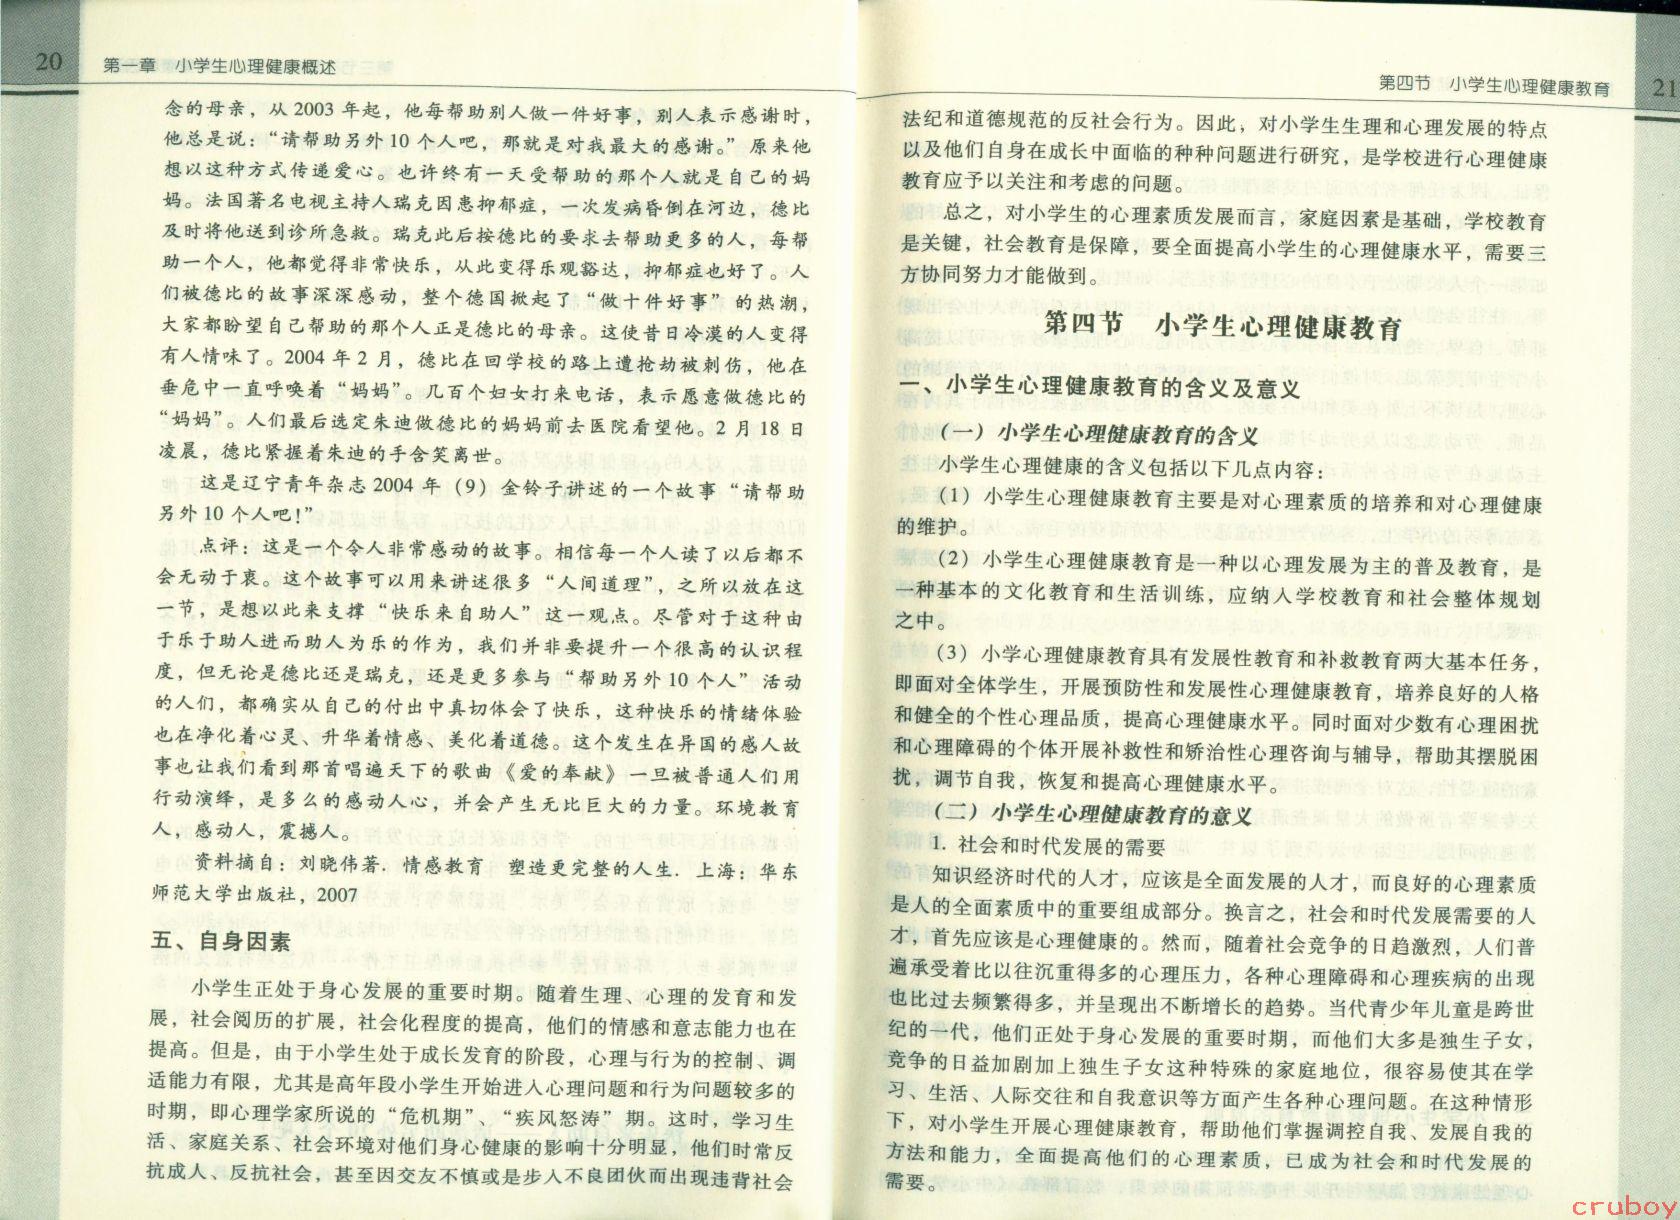 20 第一章 小学生心理健康概述
念的母亲，从 2003 年起，他每帮助别人做一件好事，别人表示感谢时，
他总是说：“请帮助另外 10 个人吧，那就是对我最大的感谢。”原来他
想以这种方式传递爱心。也许终有一天受帮助的那个人就是自己的妈
妈。法国著名电视主持人瑞克因患抑郁症，一次发病昏倒在河边，德比
及时将他送到诊所急救。瑞克此后按德比的要求去帮助更多的人，每帮
助一个人，他都觉得非常快乐，从此变得乐观豁达，抑郁症也好了。人
们被德比的故事深深感动，整个德国掀起了“做十件好事”的热潮，
大家都盼望自己帮助的那个人正是德比的母亲。这使昔日冷漠的人变得
有人情味了。2004 年 2 月，德比在回学校的路上遭抢劫被刺伤，他在
垂危中一直呼唤着“妈妈”。几百个妇女打来电话，表示愿意做德比的
“妈妈”。人们最后选定朱迪做德比的妈妈前去医院看望他。2 月 18 日
凌晨，德比紧握着朱迪的手含笑离世。
这是辽宁青年杂志 2004 年（9）金铃子讲述的一个故事“请帮助
另外 10 个人吧！”
点评：这是一个令人非常感动的故事。相信每一个人读了以后都不
会无动于衷。这个故事可以用来讲述很多“人间道理”，之所以放在这
一节，是想以此来支撑“快乐来自助人”这一观点。尽管对于这种由
于乐于助人进而助人为乐的作为，我们并非要提升一个很高的认识程
度，但无论是德比还是瑞克，还是更多参与“帮助另外 10 个人”活动
的人们，都确实从自己的付出中真切体会了快乐，这种快乐的情绪体验
也在净化着心灵、升华着情感、美化着道德。这个发生在异国的感人故
事也让我们看到那首唱遍天下的歌曲《爱的奉献》一旦被普通人们用
行动演绎，是多么的感动人心，并会产生无比巨大的力量。环境教育
人，感动人，震撼人。
资料摘自：刘晓伟著，情感教育 塑造更完整的人生．上海：华东
师范大学出版社，2007
五、自身因素
小学生正处于身心发展的重要时期。随着生理、心理的发育和发
展，社会阅历的扩展，社会化程度的提高，他们的情感和意志能力也在
提高。但是，由于小学生处于成长发育的阶段，心理与行为的控制、调
适能力有限，尤其是高年段小学生开始进入心理问题和行为问题较多的
时期，即心理学家所说的“危机期”、“疾风怒涛”期。这时，学习生
活、家庭关系、社会环境对他们身心健康的影响十分明显，他们时常反
抗成人、反抗社会，甚至因交友不慎或是步人不良团伙而出现违背社会
第四节 小学生心理健康教育 21
法纪和道德规范的反社会行为。因此，对小学生生理和心理发展的特点
以及他们自身在成长中面临的种种问题进行研究，是学校进行心理健康
教育应予以关注和考虑的问题。
总之，对小学生的心理素质发展而言，家庭因素是基础，学校教育
是关键，社会教育是保障，要全面提高小学生的心理健康水平，需要三
方协同努力才能做到。
第四节 小学生心理健康教育
一、小学生心理健康教育的含义及意义
（一）小学生心理健康教育的含义
小学生心理健康的含义包括以下几点内容：
（1）小学生心理健康教育主要是对心理素质的培养和对心理健康
的维护。
（2）小学生心理健康教育是一种以心理发展为主的普及教育，是
一种基本的文化教育和生活训练，应纳入学校教育和社会整体规划
之中。
（3）小学心理健康教育具有发展性教育和补救教育两大基本任务，
即面对全体学生，开展预防性和发展性心理健康教育，培养良好的人格
和健全的个性心理品质，提高心理健康水平。同时面对少数有心理困扰
和心理障碍的个体开展补救性和矫治性心理咨询与辅导，帮助其摆脱困
扰，调节自我，恢复和提高心理健康水平。
（二）小学生心理健康教育的意义
1. 社会和时代发展的需要
知识经济时代的人才，应该是全面发展的人才，而良好的心理素质
是人的全面素质中的重要组成部分。换言之，社会和时代发展需要的人
才，首先应该是心理健康的。然而，随着社会竞争的日趋激烈，人们普
遍承受着比以往沉重得多的心理压力，各种心理障碍和心理疾病的出现
也比过去频繁得多，并呈现出不断增长的趋势。当代青少年儿童是跨世
纪的一代，他们正处于身心发展的重要时期，而他们大多是独生子女，
竞争的日益加剧加上独生子女这种特殊的家庭地位，很容易使其在学
习、生活、人际交往和自我意识等方面产生各种心理问题。在这种情形
下，对小学生开展心理健康教育，帮助他们掌握调控自我、发展自我的
方法和能力，全面提高他们的心理素质，已成为社会和时代发展的
需要。
cruboy